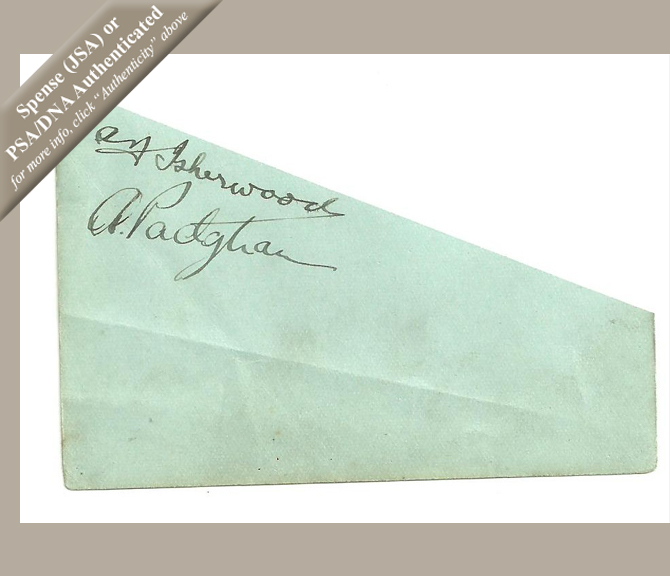 Spense (JSA) or
PSA/DNA Authenticated
for more info, click "Authenticity" above
Isherwood
A. Padgham